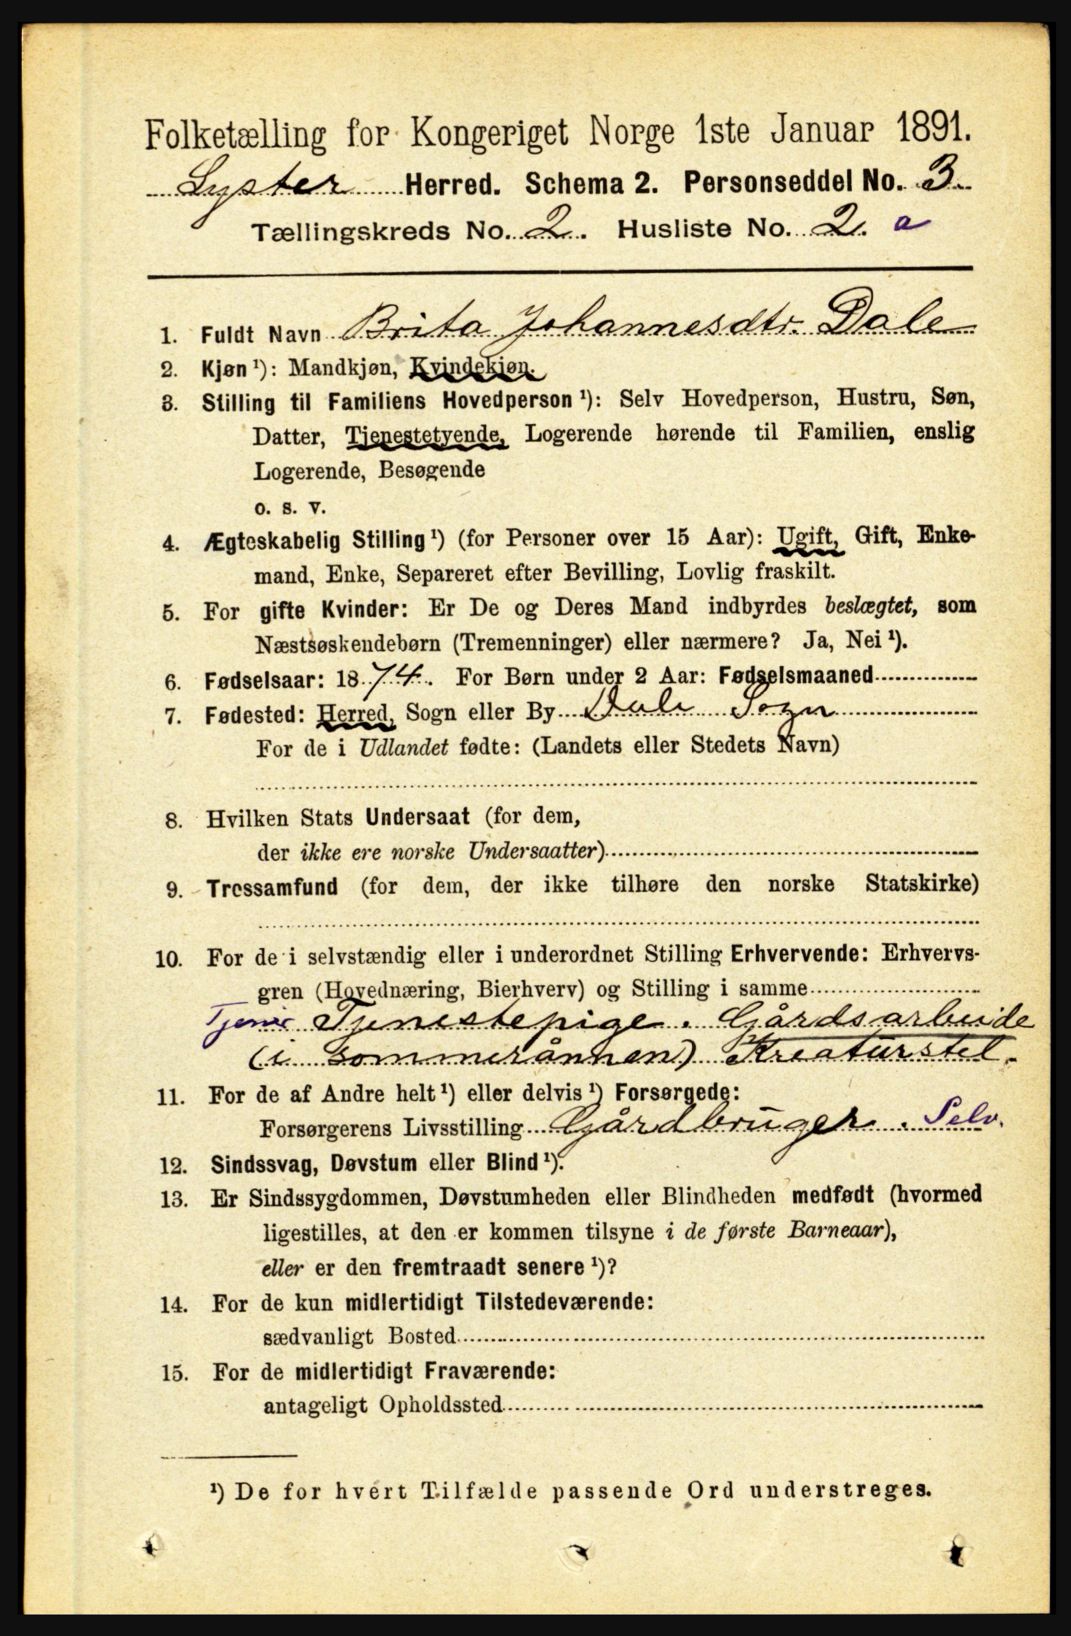 Folketælling for Kongeriget Norge 1ste Januar 1891.
Lyster Herred. Schema 2. Personseddel No. 3.
Tællingskreds No. 2. Husliste No. 2. a
1. Fuldt Navn Brita Johannesdtr. Dale
2. Kjøn ¹): Mandkjøn, Kvindekjøn.
3. Stilling til Familiens Hovedperson ¹): Selv Hovedperson, Hustru, Søn,
Datter, Tjenestetyende, Logerende hørende til Familien, enslig
Logerende, Besøgende
o. s. v.
4. Ægteskabelig Stilling ¹) (for Personer over 15 Aar): Ugift, Gift, Enke-
mand, Enke, Separeret efter Bevilling, Lovlig fraskilt.
5. For gifte Kvinder: Er De og Deres Mand indbyrdes beslægtet, som
Næstsøskendebørn (Tremenninger) eller nærmere? Ja, Nei ¹).
6. Fødselsaar: 1874. For Børn under 2 Aar: Fødselsmaaned
7. Fødested: Herred, Sogn eller By Dale Sogn
For de i Udlandet fødte: (Landets eller Stedets Navn)
8. Hvilken Stats Undersaat (for dem,
der ikke ere norske Undersaatter)
9. Trossamfund (for dem, der ikke tilhøre den norske Statskirke)
10. For de i selvstændig eller i underordnet Stilling Erhvervende: Erhvervs-
gren (Hovednæring, Bierhverv) og Stilling i samme
Tjener Tjenestepige. Gårdsarbeide
(i sommerånnen) Kreaturstel.
11. For de af Andre helt ¹) eller delvis ¹) Forsørgede:
Forsørgerens Livsstilling Gårdbruger. Selv.
12. Sindssvag, Døvstum eller Blind ¹).
13. Er Sindssygdommen, Døvstumheden eller Blindheden medfødt (hvormed
ligestilles, at den er kommen tilsyne i de første Barneaar),
eller er den fremtraadt senere ¹)?
14. For de kun midlertidigt Tilstedeværende:
sædvanligt Bosted
15. For de midlertidigt Fraværende:
antageligt Opholdssted
¹) De for hvert Tilfælde passende Ord understreges.